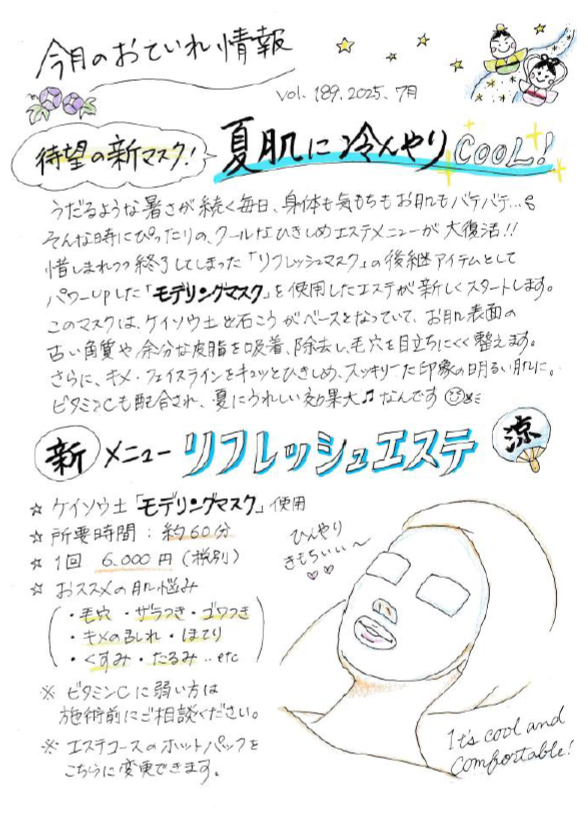 今月のおていれ情報
vol. 189. 2025. 7月
待望の新マスク!
夏肌に冷んやりCOOL!
うだるような暑さが続く毎日、身体も気もちもお肌もバテバテ…。
そんな時にぴったりの、クールなひきしめエステメニューが大復活!!
惜しまれつつ終了してしまった「リフレッシュマスク」の後継アイテムとして
パワーupした「モデリングマスク」を使用したエステが新しくスタートします。
このマスクは、ケイソウ土と石こうがベースとなっていて、お肌表面の
古い角質や余分な皮脂を吸着、除去し、毛穴を目立ちにくく整えます。
さらに、キメ・フェイスラインをキュッとひきしめ、スッキリした印象の明るい肌に。
ビタミンCも配合され、夏にうれしい効果大♫なんです
新メニュー リフレッシュエステ
涼
☆ ケイソウ土「モデリングマスク」使用
☆ 所要時間:約60分
☆ 1回 6.000円(税別)
☆ おススメの肌悩み
・毛穴 ・ザラつき・ゴワつき
・キメの乱れ・ほてり
・くすみ・たるみ …etc
※ ビタミンCに弱い方は
施術前にご相談ください。
※ エステコースのホットパックを
こちらに変更できます。
ひんやり
きもちいい〜
♡♡
It's cool and
comfortable!